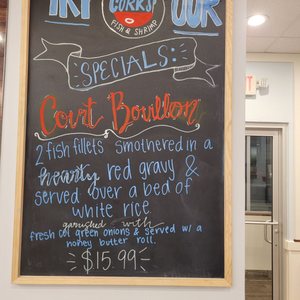 TRY OUR
CORKY
FISH & SHRIMP
SPECIALS
Court Bouillon
2 fish fillets smothered in a
hearty red gravy &
served over a bed of
white rice.
garnished with
fresh cut green onions & served w/ a
honey butter roll.
$15.99